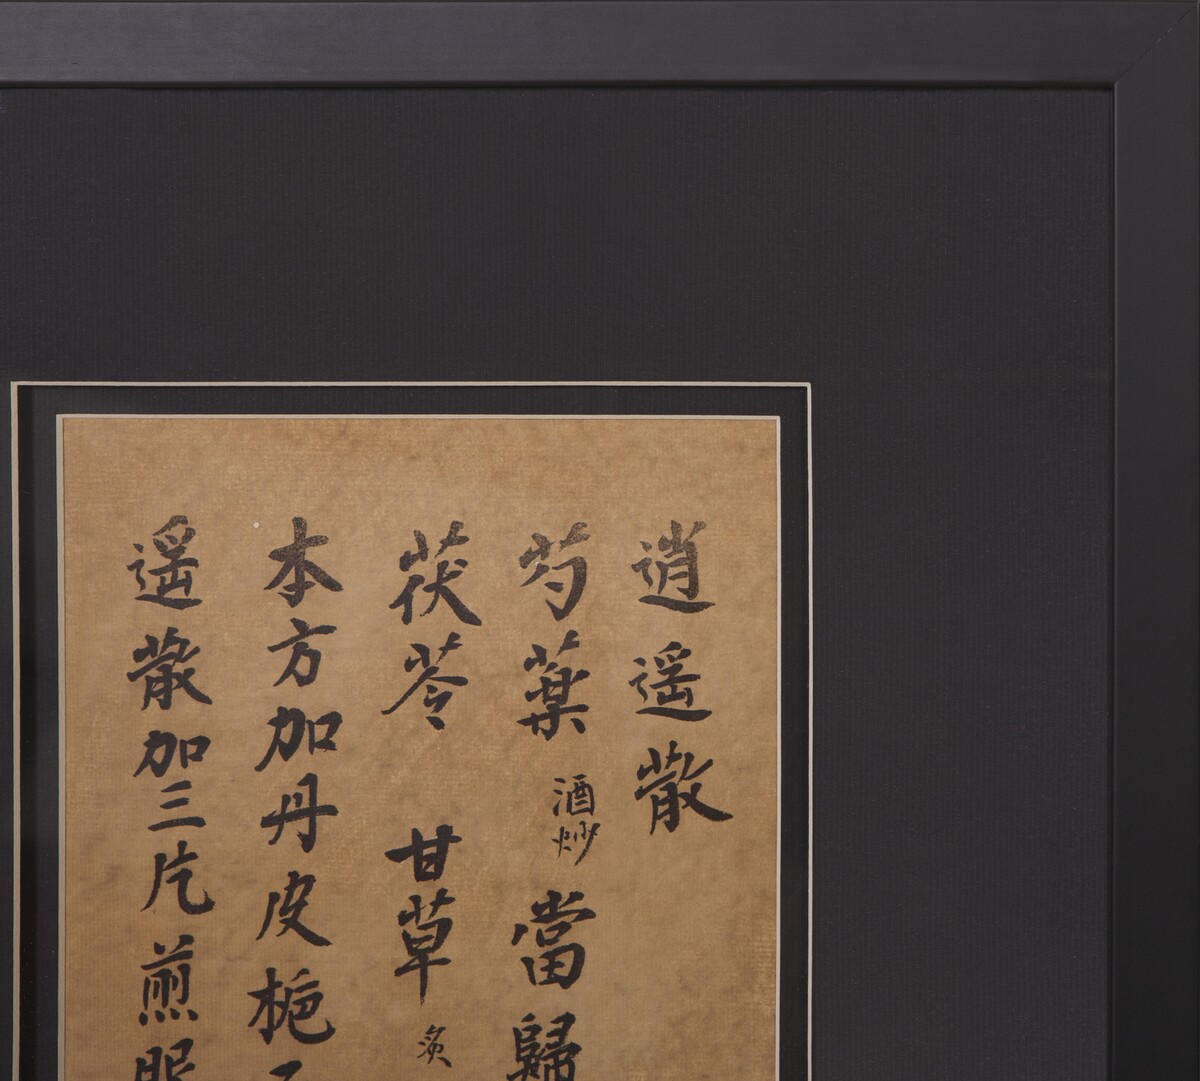 逍遥散
芍薬 酒炒 當歸
茯苓 甘草 炙
本方加丹皮栀
遥散加三片煎服